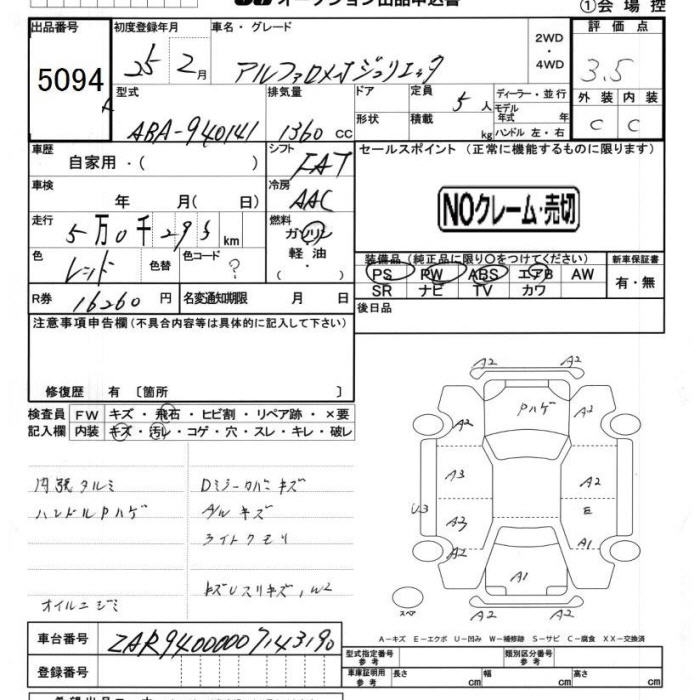 オークション出品申込書 ①会場控
出品番号 初度登録年月 車名・グレード 2WD・4WD 評価点
5094 25年2月 アルファロメオジュリエッタ 3.5
型式 排気量 ドア 定員 5人 ディーラー・並行 外装 内装
ABA-940141 1360cc 形状 積載 kg モデル年式 年 ハンドル 左・右 C C
車歴 シフト セールスポイント（正常に機能するものに限ります）
自家用・（ ） FAT
車検 冷房
年 月（ 日） AAC NOクレーム・売切
走行 燃料
5万0千295km ガソリン
色 色替 色コード 軽油 装備品（純正品に限り○をつけてください） 新車保証書
レッド ? （ ・ ） PS PW ABS エアB AW 有・無
SR ナビ TV カワ
R券 16260円 名変通知期限 月 日 後日品
注意事項申告欄（不具合内容等は具体的に記入して下さい）
修復歴 有〔箇所 〕
検査員 FW キズ・飛石・ヒビ割・リペア跡・×要
記入欄 内装 キズ・汚レ・コゲ・穴・スレ・キレ・破レ
内張タルミ Dミラーカバーキズ
ハンドルPハゲ A/Wキズ
ライトクモリ
キズUスリキズ,W2
オイルニジミ
A2 A2
A2 Pハゲ A2
A3 A2
U3 E
A3
A2 A1
A1
A2 A2
スペア
A－キズ E－エクボ U－凹み W－補修跡 S－サビ C－腐食 XX－交換済
車台番号 ZAR94000007143190 型式指定番号 参考 類別区分番号 参考
登録番号 車庫証明用 参考 長さ cm 幅 cm 高さ cm